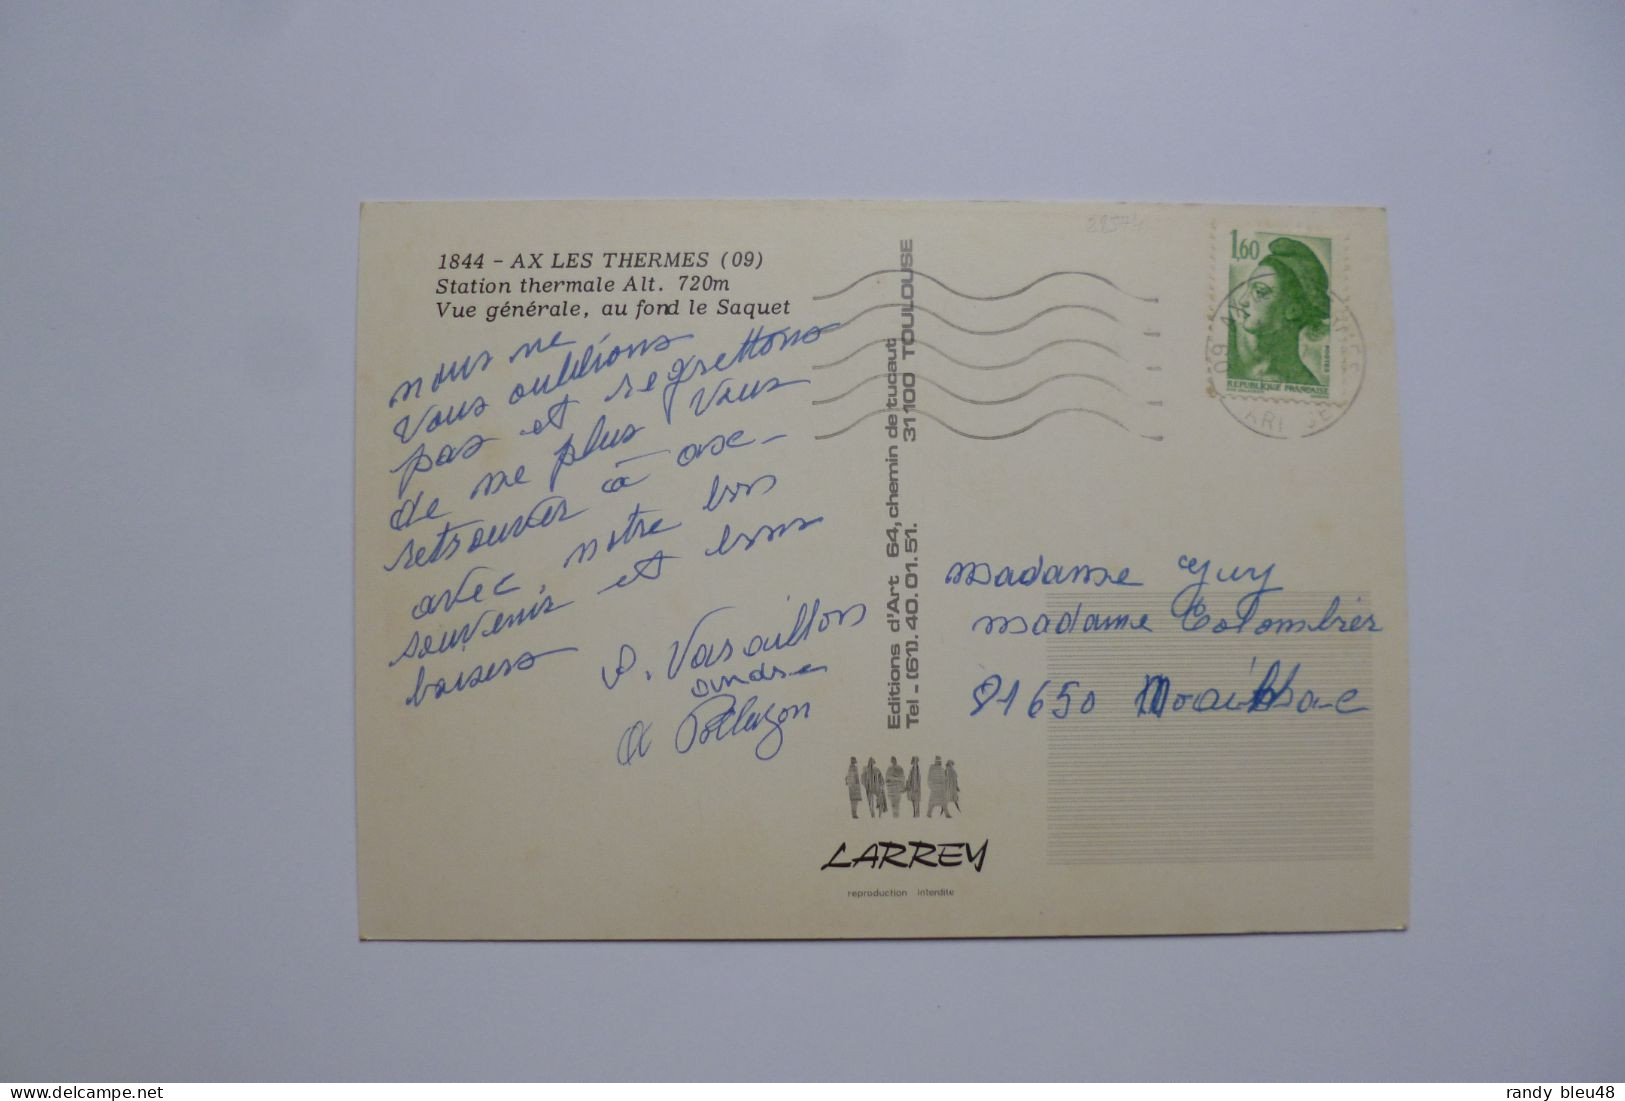 1844 - AX LES THERMES (09)
Station thermale Alt. 720m
Vue générale, au fond le Saquet
nous ne
vous oublions
pas et regrettons
de ne plus vous
retrouver à axe -
avec, notre bon
souvenir et bons
baisers
Editions d'Art 64, chemin de tucaut
Tel - (61). 40.01.51. 31100 TOULOUSE
28574
1,60
REPUBLIQUE FRANÇAISE
09 AX
madame Guy
madame Colombier
91650
LARREY
reproduction interdite
randy bleu48